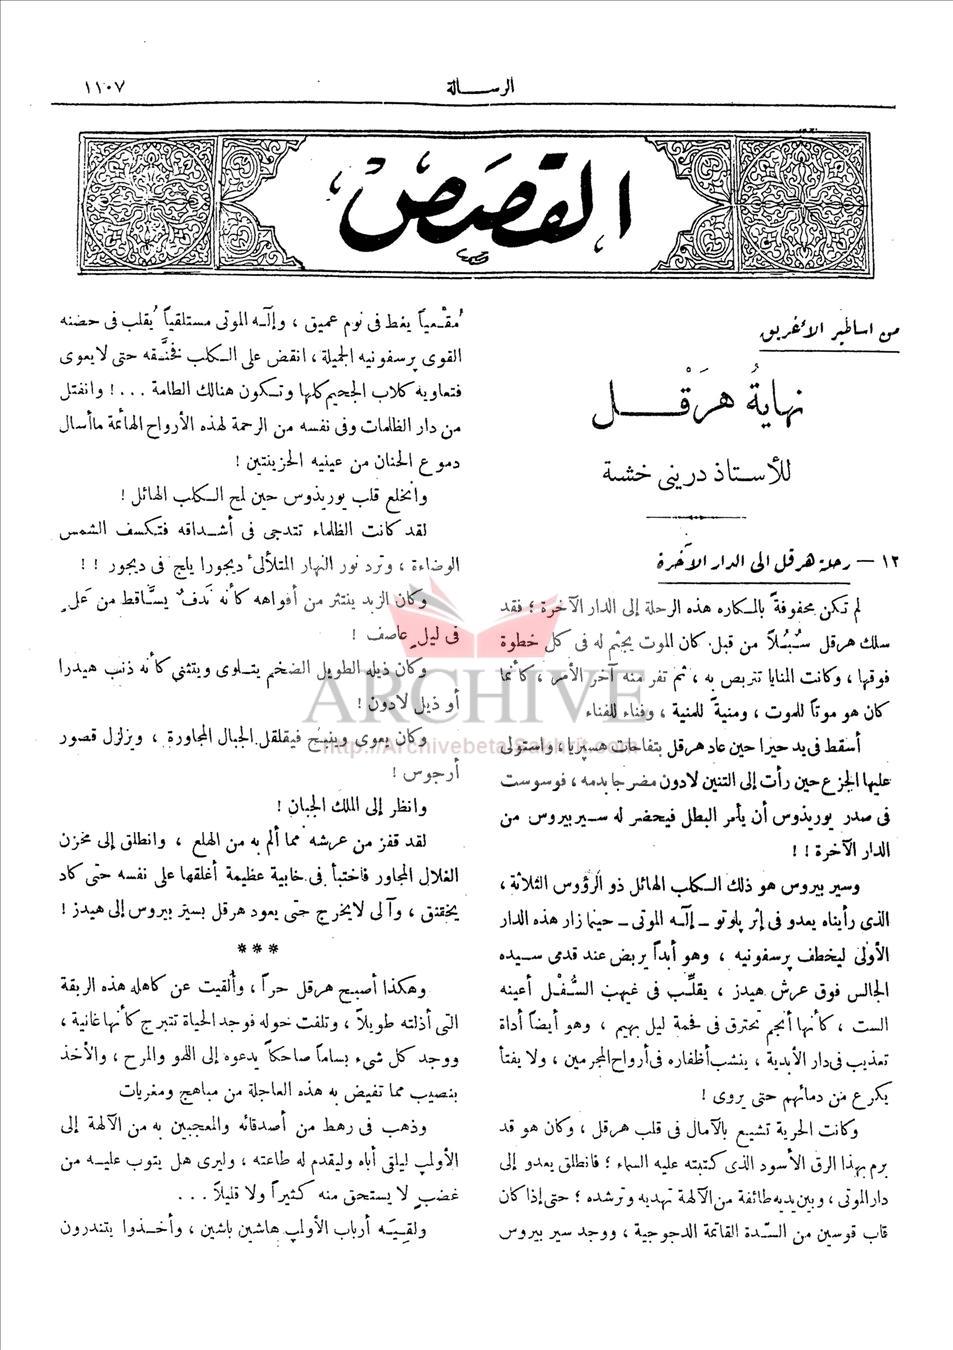 الرسالة
١١٠٧
القصص
من أساطير الأغريق
نهايةُ هرَقْل
للأستاذ دريني خشبة
١٢ — رحلة هرقل إلى الدار الآخرة
لم تكن محفوفةً بالمكاره هذه الرحلة إلى الدار الآخرة ؛ فقد
سلك هرقل سُبُلاً من قبل كان الموت يجثم له في كل خطوة
فوقها ، وكانت المنايا تتربص به ، ثم تفر منه آخر الأمر ، كأنما
كان هو موتاً للموت ، ومنيةً للمنية ، وفناء للفناء
أسقط في يد حيرا حين عاد هرقل بتفاحات هسبريا ، واستولى
عليها الجزع حين رأت إلى التنين لادون مضرجا بدمه ، فوسوست
في صدر يوريذوس أن يأمر البطل فيحضر له سيربيروس من
الدار الآخرة ! !
وسيربيروس هو ذلك الكلب الهائل ذو الرؤوس الثلاثة ،
الذي رأيناه يعدو في إثر پلوتو – إلـه الموتى – حينما زار هذه الدار
الأولى ليخطف پرسفونيه ، وهو أبداً يربض عند قدمي سيده
الجالس فوق عرش هيدز ، يقلِّب في غيهب السُّفْل أعينه
الست ، كأنها أنجم تحترق في فحمة ليل بهيم . وهو أيضاً أداة
تعذيب في دار الأبدية ، ينشب أظفاره في أرواح المجرمين ، ولا يفتأ
يكرع من دمائهم حتى يروى !
وكانت الحرية تشيع بالآمال في قلب هرقل ، وكان هو قد
برم بهذا الرق الأسود الذي كتبته عليه السماء ؛ فانطلق يعدو إلى
دار الموتى ، وبين يديه طائفة من الآلهة تهديه وترشده ؛ حتى إذا كان
قاب قوسين من السّدة القاتمة الدجوجية ، ووجد سيربيروس
مُقْعياً يغط في نوم عميق ، وإلـه الموتى مستلقياً يُقلب في حضنه
القوى پرسفونيه الجميلة ، انقض على الكلب فخنّقه حتى لا يعوى
فتعاويه كلاب الجحيم كلها وتكون هنالك الطامة ...! وانفتل
من دار الظلمات وفي نفسه من الرحمة لهذه الأرواح الهائمة ما أسال
دموع الحنان من عينيه الحزينتين !
وانخلع قلب يوريذوس حين لمح الكلب الهائل !
لقد كانت الظلماء تتدجى في أشداقه فتكسف الشمس
الوضاءة ، وترد نور النهار المتلألئ ديجورا يلج في ديجور ! !
وكان الزبد ينتثر من أفواهه كأنه نَدفٌ يسَّاقط من عَلٍ
في ليلٍ عاصف !
وكان ذيله الطويل الضخم يتلوى ويتثنى كأنه ذنب هيدرا
أو ذيل لادون !
وكان يعوى وينبح فيقلقل الجبال المجاورة ، ويزلزل قصور
أرجوس !
وانظر إلى الملك الجبان !
لقد قفز من عرشه مما ألم به من الهلع ، وانطلق إلى مخزن
الغلال المجاور فاختبأ في خابية عظيمة أغلقها على نفسه حتى كاد
يختنق ، وآلى لا يخرج حتى يعود هرقل بسيربيروس إلى هيدز !
***
وهكذا أصبح هرقل حراً ، وألقيت عن كاهله هذه الربقة
التي أذلته طويلاً ، وتلفت حوله فوجد الحياة تتبرج كأنها غانية ،
ووجد كل شيء بساماً ضاحكاً يدعوه إلى اللهو والمرح ، والأخذ
بنصيب مما تفيض به هذه العاجلة من مباهج ومغريات
وذهب في رهط من أصدقائه والمعجبين به من الآلهة إلى
الأولمب ليلقى أباه وليقدم له طاعته ، وليرى هل يتوب عليه من
غضبٍ لا يستحق منه كثيراً ولا قليلاً ...
ولقيَه أرباب الأولمب هاشين باشين ، وأخذوا يتندرون
ARCHIVE
http://Archivebeta.Sakhrit.com